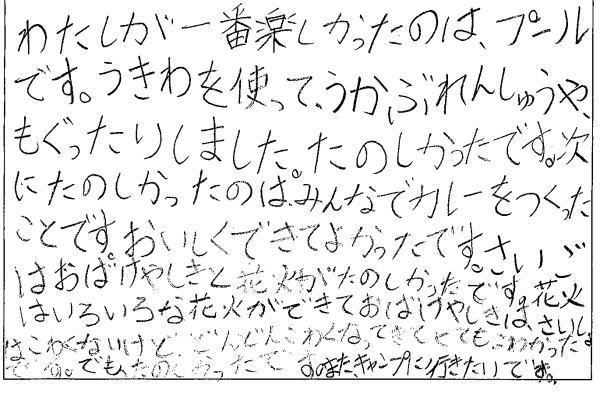 わたしが一番楽しかったのは、プール
です。うきわを使って、うかぶれんしゅうや、
もぐったりしました。たのしかったです。次
にたのしかったのは、みんなでカレーをつくった
ことです。おいしくできてよかったです。さいご
はおばけやしきと花火がたのしかったです。花火
はいろいろな花火ができておばけやしきは、さいしょ
はこわくないけど、どんどんこわくなってきてとてもこわかった
です。でも、たのしかったです。またキャンプに行きたいです。